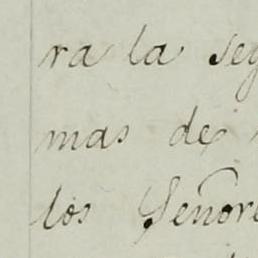 ra la seg
mas de
los Señore